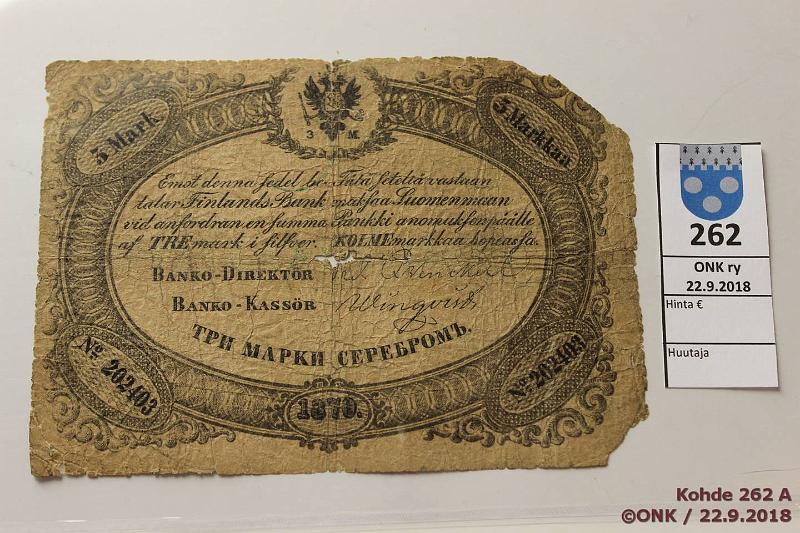 3 Mark
3 Markkaa
3 M.
Emot denna sedel be-
talar Finlands Bank
vid anfordran en summa
af TRE mark i silfver.
Tätä seteliä vastaan
maksaa Suomenmaan
Pankki anomuksen päälle
KOLME markkaa hopeassa.
BANKO-DIREKTÖR
BANKO-KASSÖR
ТРИ МАРКИ СЕРЕБРОМЪ.
No. 202403
No. 202403
1870.
262
ONK ry
22.9.2018
Hinta €
Huutaja
Kohde 262 A
©ONK / 22.9.2018